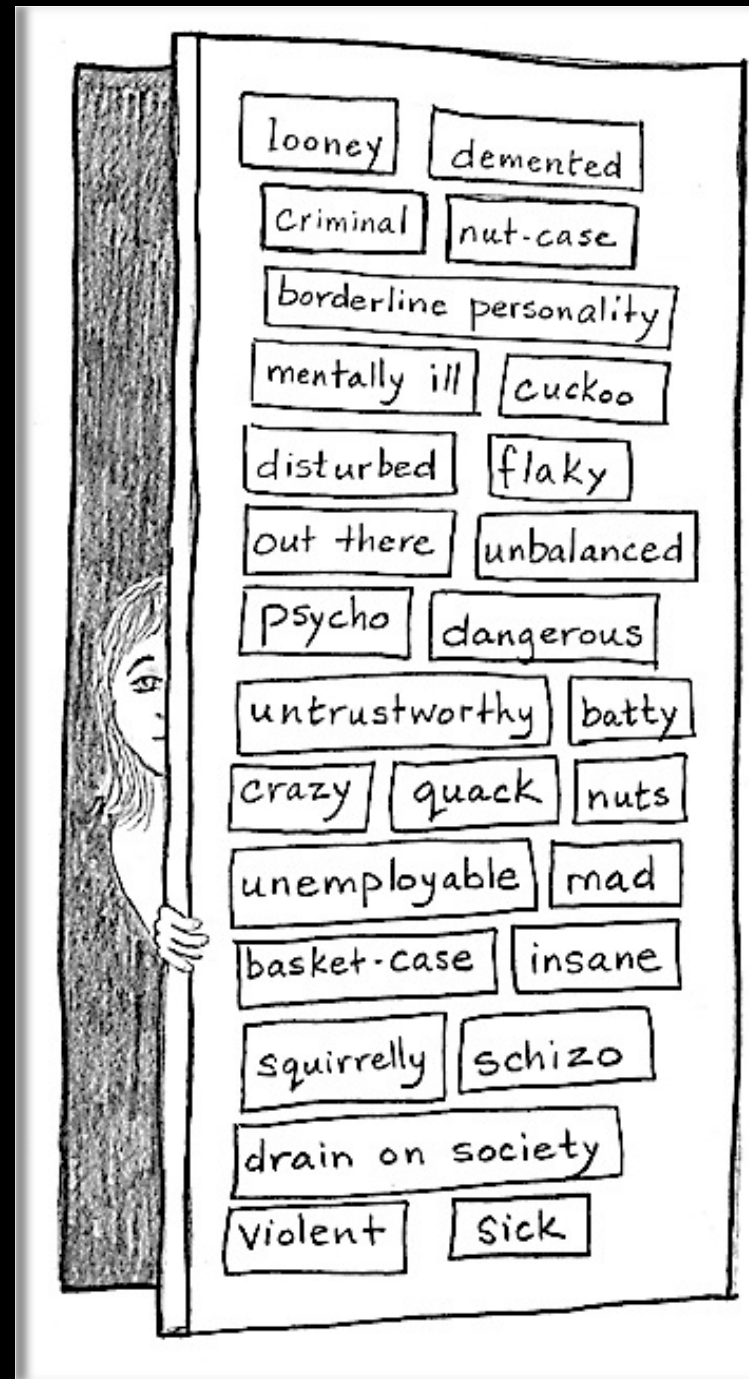 looney demented
Criminal nut-case
borderline personality
mentally ill cuckoo
disturbed flaky
out there unbalanced
psycho dangerous
untrustworthy batty
crazy quack nuts
unemployable mad
basket-case insane
squirrelly schizo
drain on society
Violent Sick